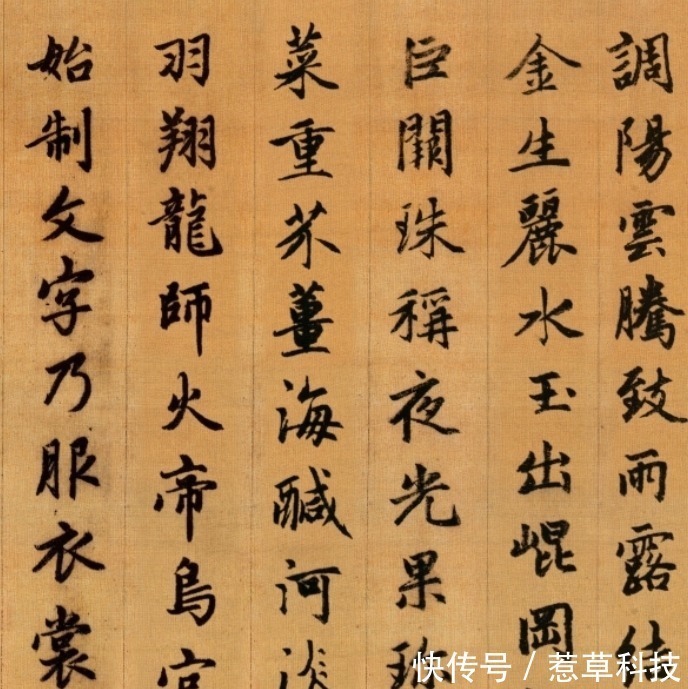 調陽雲騰致雨露結
金生麗水玉出崐岡
巨闕珠稱夜光果珍
菜重芥薑海醎河淡
羽翔龍師火帝鳥官
始制文字乃服衣裳
快传号 / 惹草科技